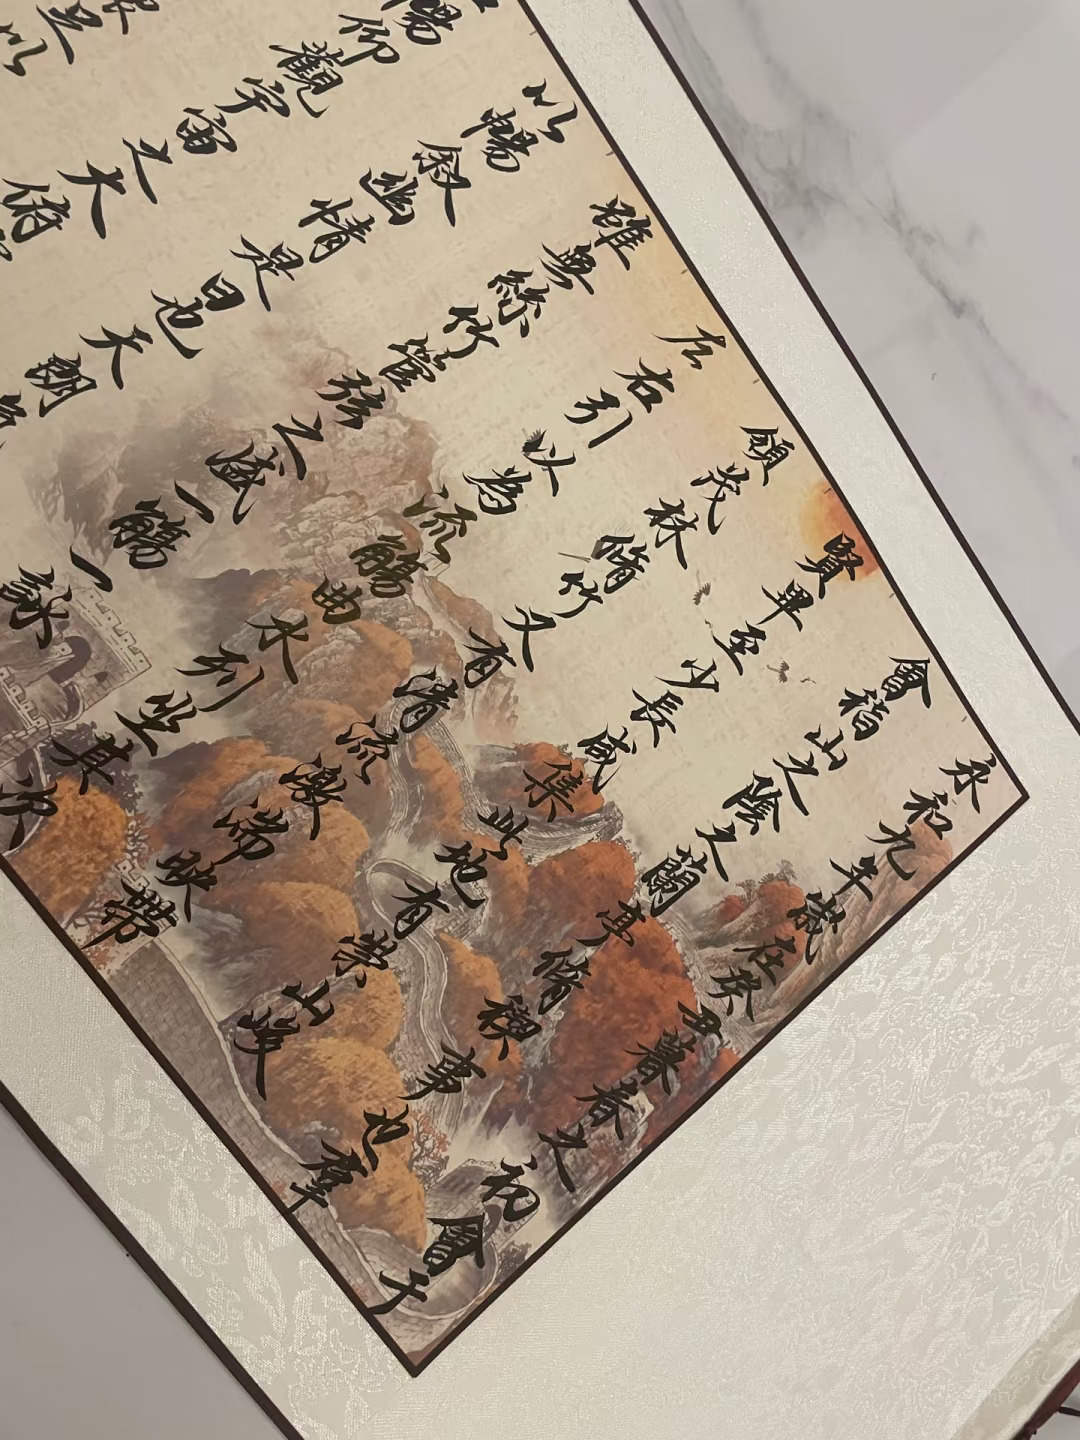 永和九年歲在癸丑暮春之初會于
會稽山之陰之蘭亭脩禊事也羣
賢畢至少長咸集此地有崇山峻
領茂林脩竹又有清流激湍映帶
左右引以為流觴曲水列坐其次
雖無絲竹管弦之盛一觴一詠
以暢敘幽情是日也天朗氣
暢仰觀宇宙之大俯
足以